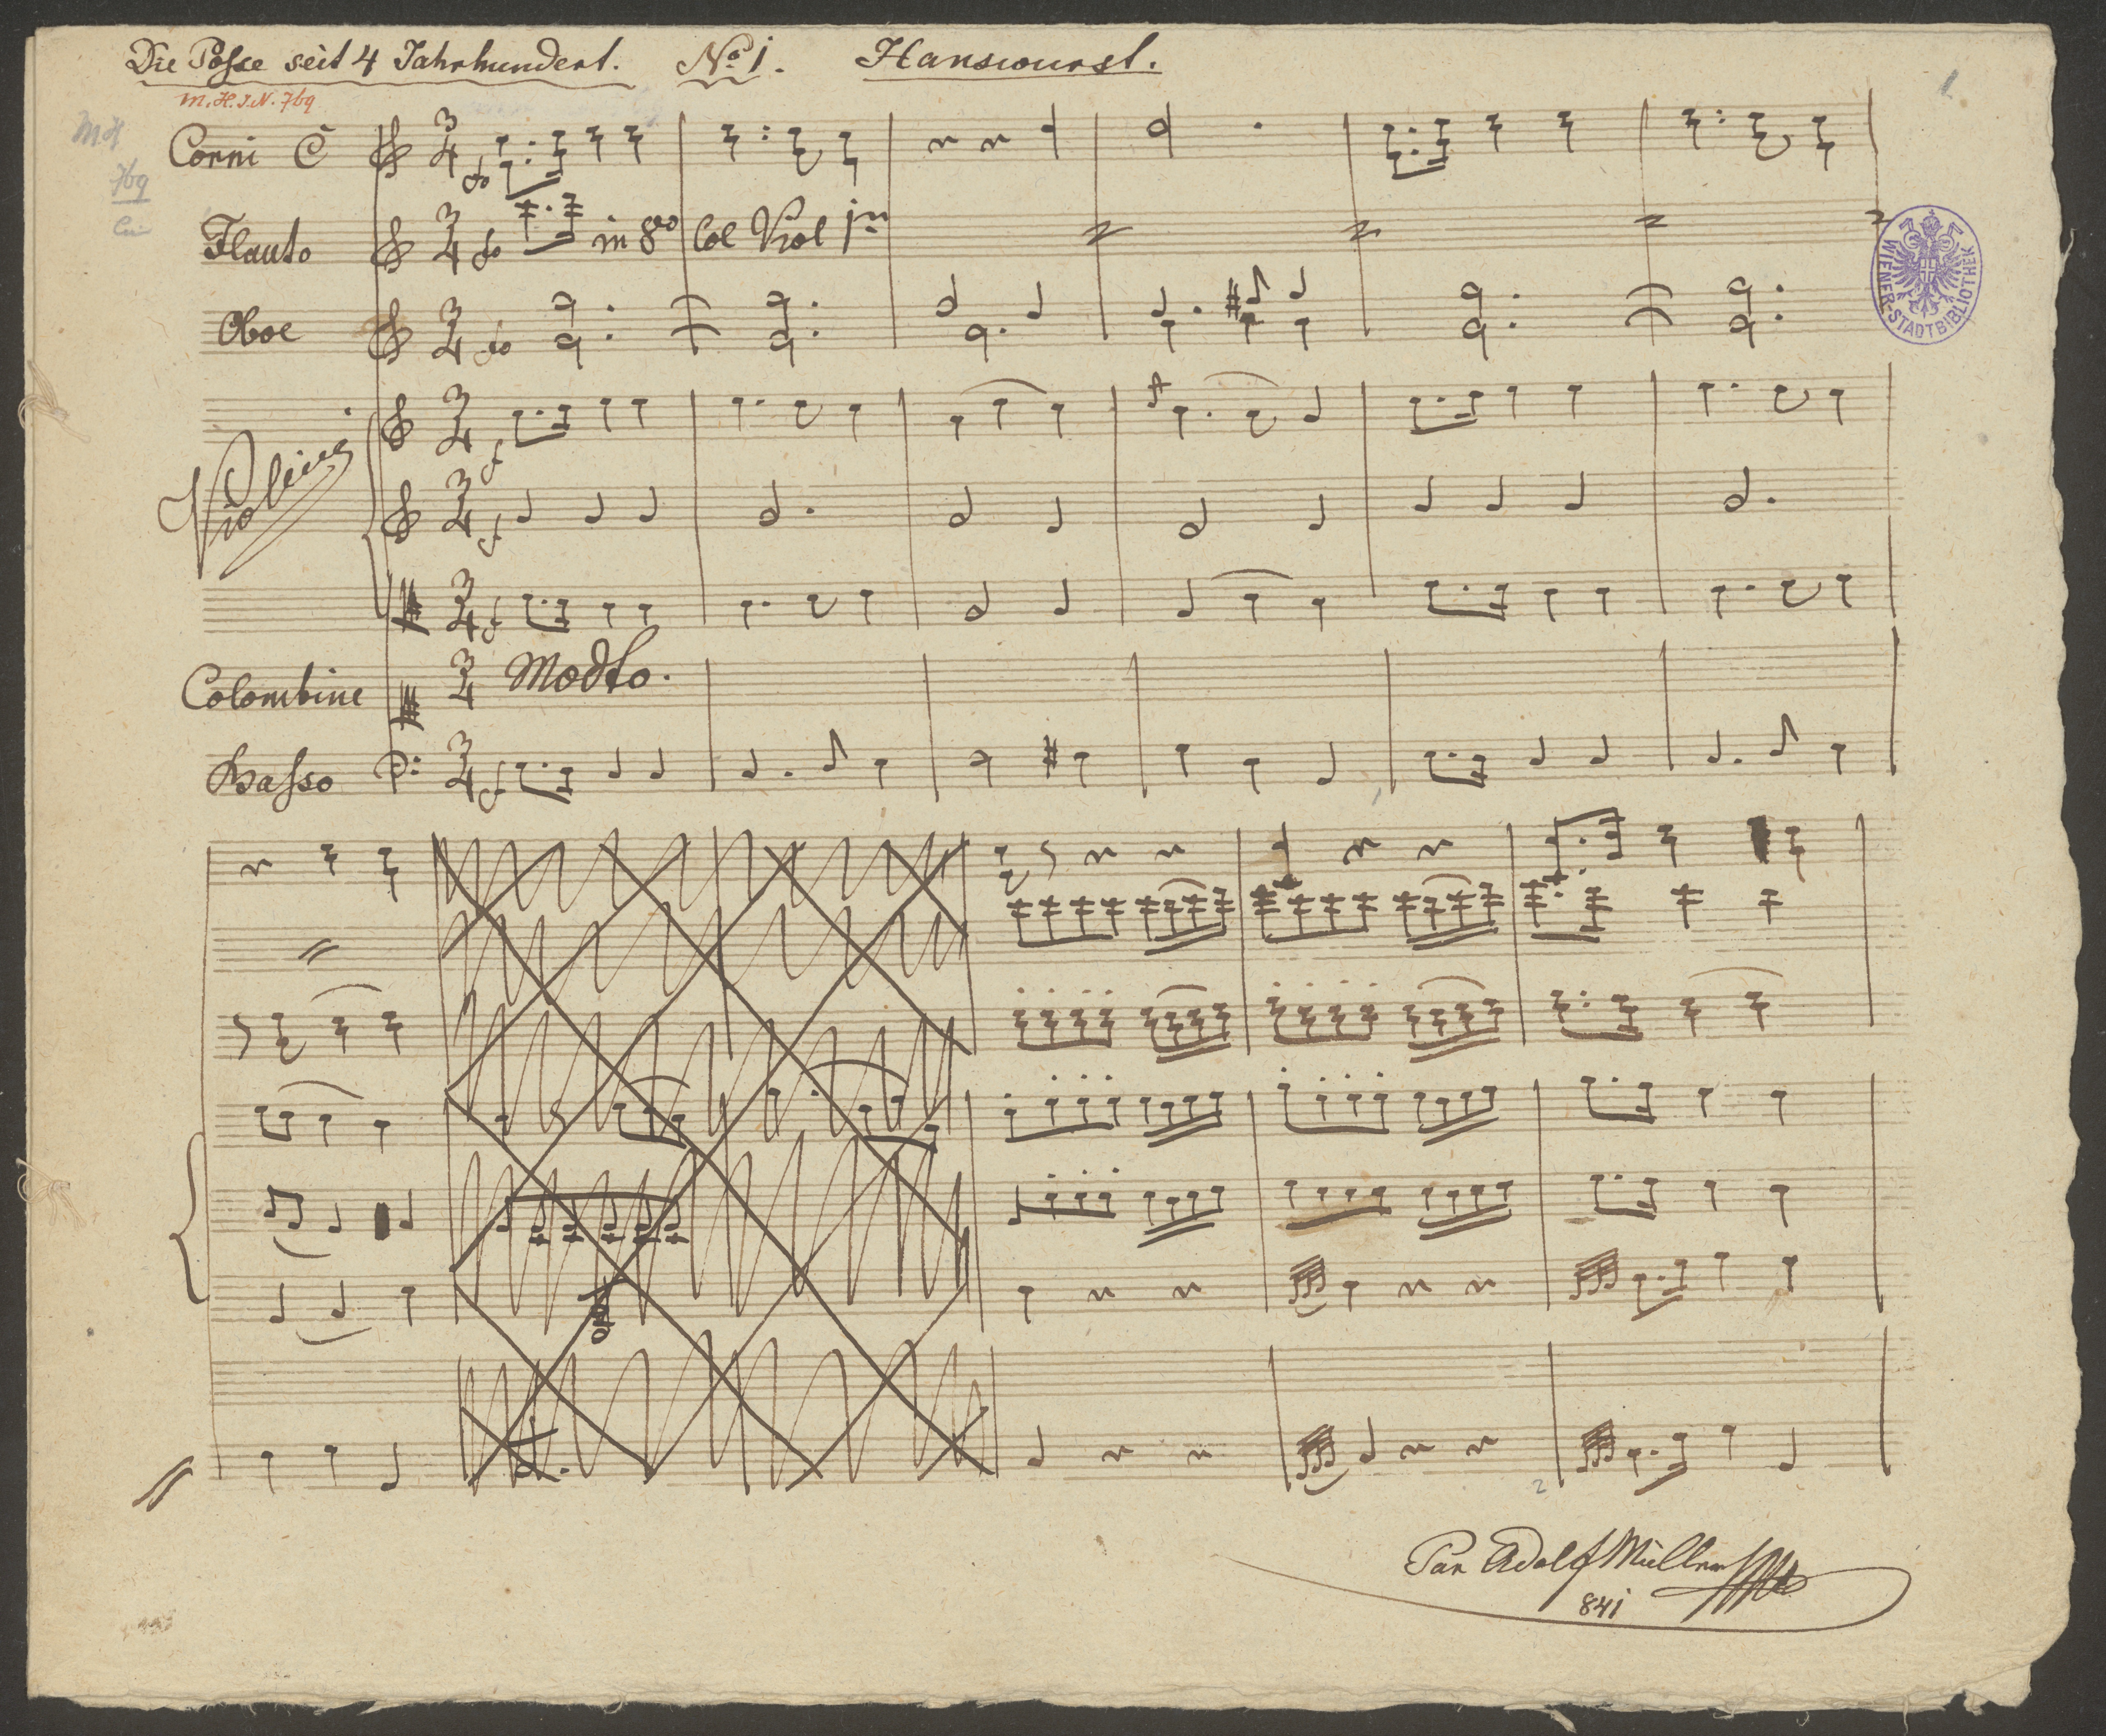 Die Posse seit 4 Jahrhundert. No 1. Hanswurst.
M.H.I.N. 769
MH
769
1
Corni C
Flauto in 8vo Col Viol 1mo
Oboe
Violini
Colombine Modto.
Basso
WIENER-STADTBIBLIOTHEK
2
Par Adolf Müller
841